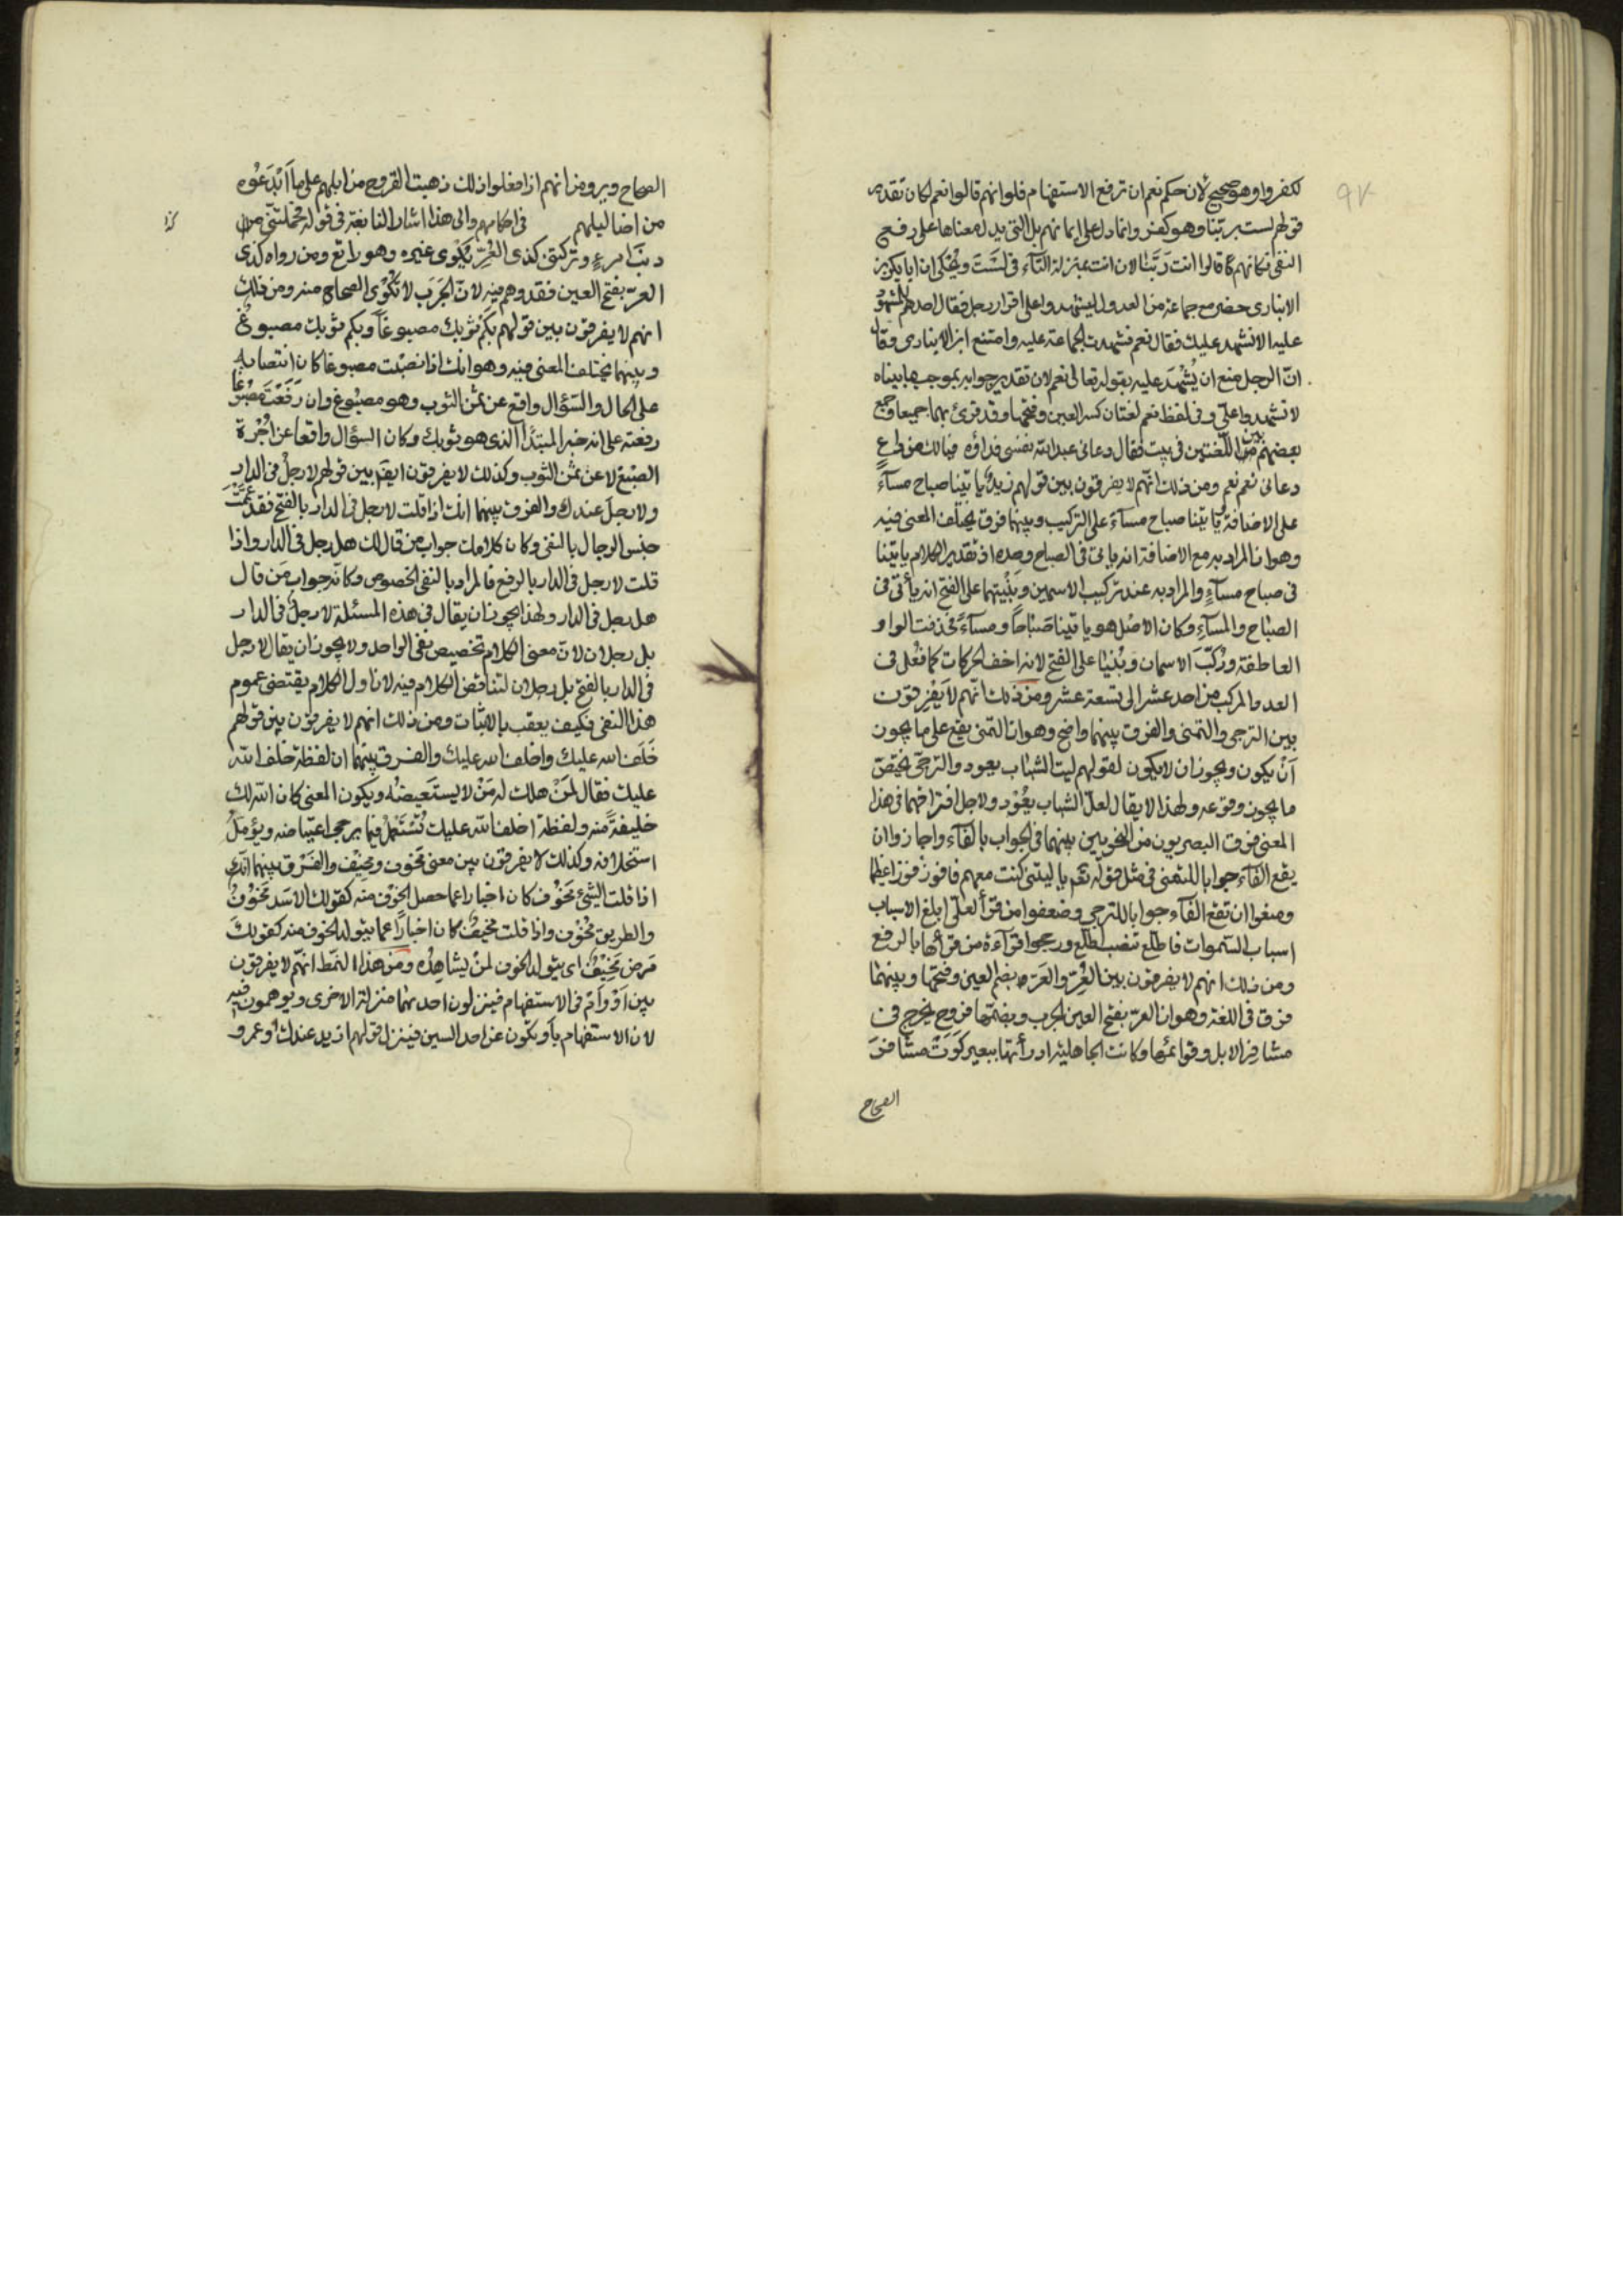 ٩٧
لكفروا وهو صحيح لان حكم نعم ان ترفع الاستفهام فلو انهم قالوا نعم لكان تقدير
قولهم لست بربنا وهو كفر وانما دل على ايمانهم بلى التي يدل معناها على رفع
النفي فكانهم قالوا انت رَبّنا لان انت بمنزلة التاء في لَسْتَ ويُحكى ان ابا بكر بن
الانباري حضر مع جماعة من العدول ليشهدوا على اقرار رجل فقال احدهم للمشهود
عليه الا نشهد عليك فقال نعم فشهدت الجماعة عليه وامتنع ابن الانباري وقال
انّ الرجل منع ان يُشْهَدَ عليه بقوله تعالى نعم لان تقدير جوابه بموجب ما بيناه
لا تشهدوا عليّ وفي لفظ نعم لغتان كسر العين وفتحها وقد قرئ بهما جميعا وجمع
بعضهم بين اللّغتين في بيت فقال دعاني عبد الله نفسي فداؤه فيالك من داعٍ
دعاني نعم نعم ومن ذلك انّهم لا يفرقون بين قولهم زيدٌ ياتينا صباح مساءٍ
على الاضافة وياتينا صباح مساءَ على التركيب وبينهما فرق يختلف المعنى فيه
وهو ان المراد به مع الاضافة انه ياتي في الصباح وحده اذ تقدير الكلام ياتينا
في صباح مساءٍ والمراد به عند تركيب الاسمين وبنيتهما على الفتح انه يأتي في
الصباح والمساءِ وكان الاصل هو ياتينا صَبَاحاً ومساءً فحذفت الواو
العاطفة ورُكّبَ الاسمان وبُنيا على الفتح لانه اخف الحركات كما فُعل في
العدد المركب من احد عشر الى تسعة عشر ومن ذلك انّهم لا يَفْرِقون
بين الترجي والتمني والفرق بينهما واضح وهو ان التمني يقع على ما يجوز
اَنْ يكون ويجوز ان لا يكون لقولهم ليت الشباب يعود والترجّي يختصّ
ما يجوز وقوعه ولهذا لا يقال لعلّ الشباب يعُوْد ولاجل افتراقهما في هذا
المعنى فرق البصريون من النحويين بينهما في الجواب بالفاء واجازوا ان
يقع الفاء جوابا للتمني في مثل قوله تعم يا ليتني كنت معهم فافوز فوزا عظيما
ومنعوا ان تقع الفاء جوابا للترجي وضعفوا من قرأ لعلّي ابلغ الاسباب
اسباب السّموات فاطّلع بنصب اطّلع ورجحوا قراءة من قرأها بالرفع
ومن ذلك انهم لا يفرقون بين العُرّ والعَرّ بضم العين وفتحها وبينهما
فرق في اللغة وهو ان العرّ بفتح العين الجرب وبضمّها قروح يخرج في
مشافر الابل وقوائمها وكانت الجاهلية اذا رأتها ببعير كَوَتْ مشافرَ
الصحاح
الصحاح ويرون انهم اذا فعلوا ذلك ذهبت القروح من ابلهم على ما اَبْدَعُوه
من اضاليلهم في احكامهم والى هذا اشار النابغة في قوله فحملتني
كذا
ذنب امرءٍ وتركتَه كذي العُرّ يُكْوى غيره وهو راتع ومن رواه كذي
العرّ بفتح العين فقد وهم فيه لانّ الجَرَب لا تُكْوَى الصحاح منه ومن ذلك
انهم لا يفرقون بين قولهم بكم ثوبك مصبوغاً وبكم ثوبك مصبوغٌ
وبينهما يختلف المعنى فيه وهو انك اذا نصبْت مصبوغا كان انتصابه
على الحال والسؤال واقع عن ثمن الثوب وهو مصبُوغ وان رَفَعْتَ مصبُوغا
رفعته على انه خبر المبتدأ الذي هو ثوبك وكان السؤال واقعا عن اجْرة
الصّبْغ لا عن ثمن الثوب وكذلك لا يفرقون ايضا بين قولهم لا رجلٌ في الدار
ولا رجلَ عندك والفرق بينهما انك اذا قلت لا رجل في الدار بالفتح فقد عَمَّتْ
جنس الرجال بالنفي وكان كلامك جواب من قال لك هل رجل في الدار واذا
قلت لا رجل في الدار بالرفع فالمراد بالنفي الخصوص وكانّه جواب مَن قال
هل رجل في الدار ولهذا يجوز ان يقال في هذه المسئلة لا رجلٌ في الدار
بل رجلان لانّ معنى الكلام تخصيص نفي الواحد ولا يجوز ان يقال لا رجل
في الدار بالفتح بل رجلان لتناقض الكلام فيه لان اول الكلام يقتضي عموم
هذا النفي فكيف يعقب بالاثبات ومن ذلك انهم لا يفرقون بين قولهم
خَلَف الله عليك واخلف الله عليك والفرق بينهما ان لفظة خلف الله
عليك فقال لمَنْ هلك له مَنْ لا يستَعيضُه ويكون المعنى كان الله لك
خليفةً منه ولفظة اخلف الله عليك تُسْتَعْمَلُ فيما يرجى اعتياضه ويؤمّلُ
استخلافه وكذلك لا يفرقون بين معنى مخَوُف ومُخِيْف والفَرْق بينهما انّك
اذا قلت الشيْ مخَوُف كان اخبارا عما حصل الخوْف منه كقولك الاسَد مخَوْفٌ
والطريق مخُوْف واذا قلت مخيفٌ كان اخبارًا عما يتولد الخوف منه كقولك
مَرض مُخِيْفٌ اي يتولد الخوف لمنْ يشاهِدُه ومن هذا النمَط انّهم لا يفرقون
بين اَوْ واَمْ في الاستفهام فينزلون احديهما منزلة الاخرى ويوهمون فيه
لان الاستفهام بأو يكون عن احد السين فينزل قولهم ازيد عندك او عمرو